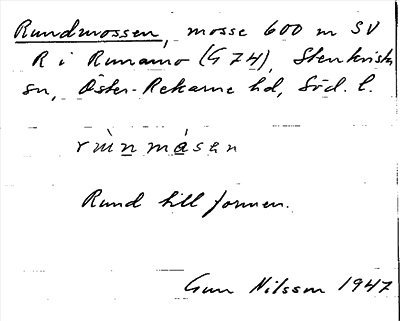 Rundmossen, mosse 600 m SV
R i Runamo (G 74), Stenkvista
sn, Öster-Rekarne hd, Söd. l.
rùn måsen
Rund till formen.
Gun Nilsson 1947